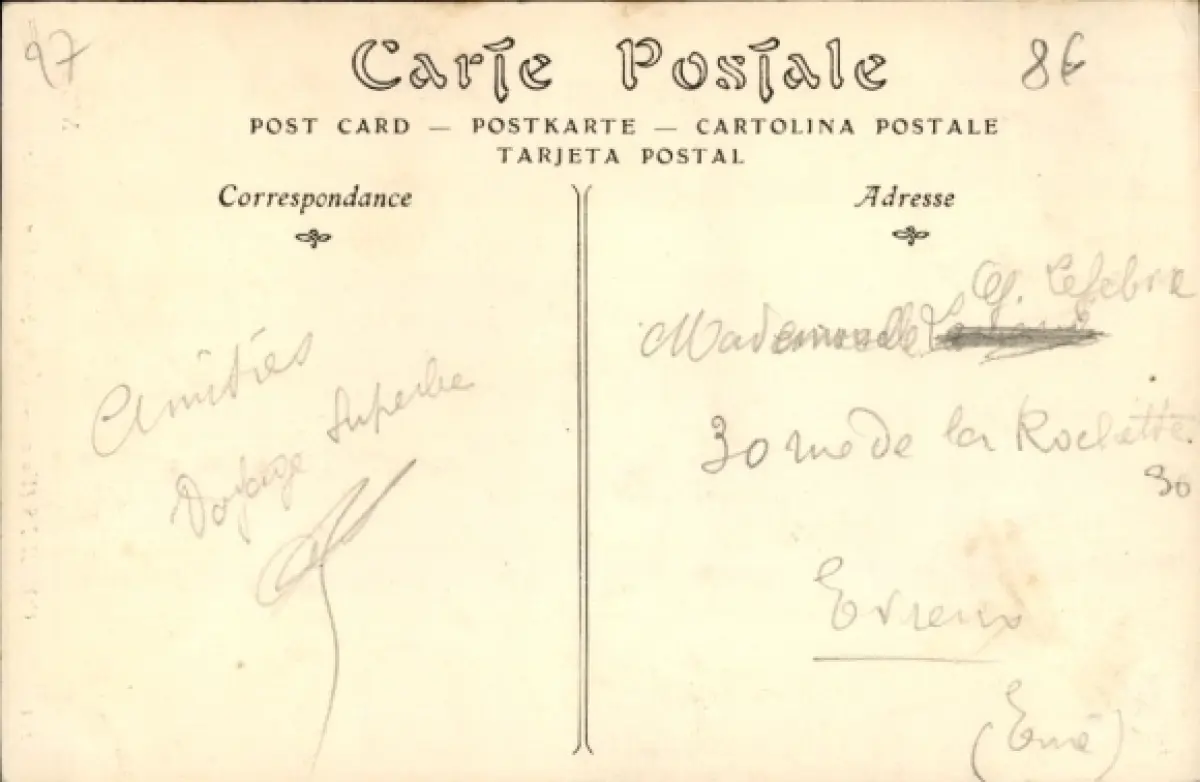 97
Carte Postale
8€
POST CARD — POSTKARTE — CARTOLINA POSTALE
TARJETA POSTAL
Correspondance
Adresse
Amitiés
Voyage Superbe
G. Lefebvre
Mademoiselle
30 rue de la Rochette
30
Evreux
(Eure)